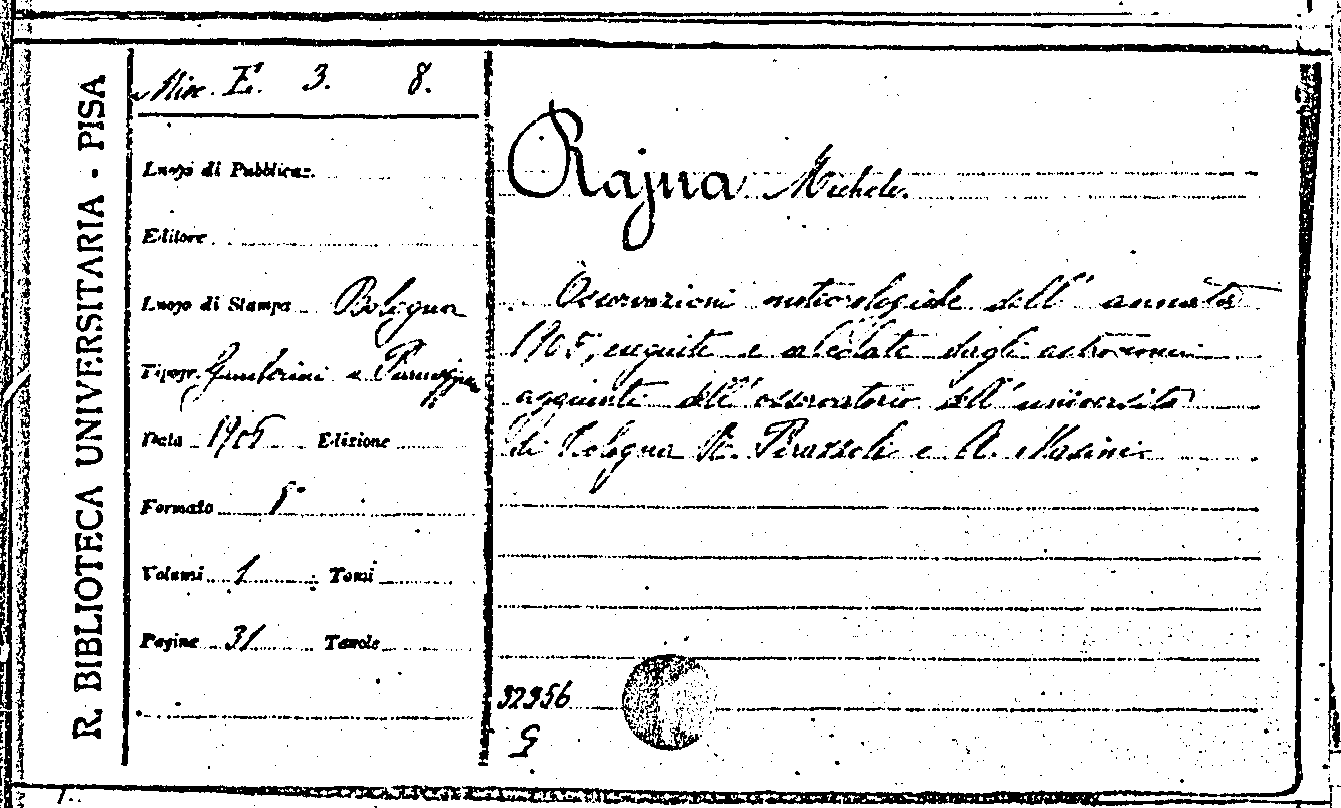 R. BIBLIOTECA UNIVERSITARIA - PISA
Misc. E. 3. 8.
Luogo di Pubblicaz.
Editore
Luogo di Stampa Bologna
Tipogr. Gamberini e Parmeggiani
Data 1905 Edizione
Formato 8°
Volumi 1 Tomi
Pagine 31 Tavole
Rajna Michele.
Osservazioni meteorologiche dell' annata
1905, eseguite e calcolate dagli astronomi
aggiunti dell' osservatorio dell' università
di Bologna R. Pirazzoli e A. Masini
32956